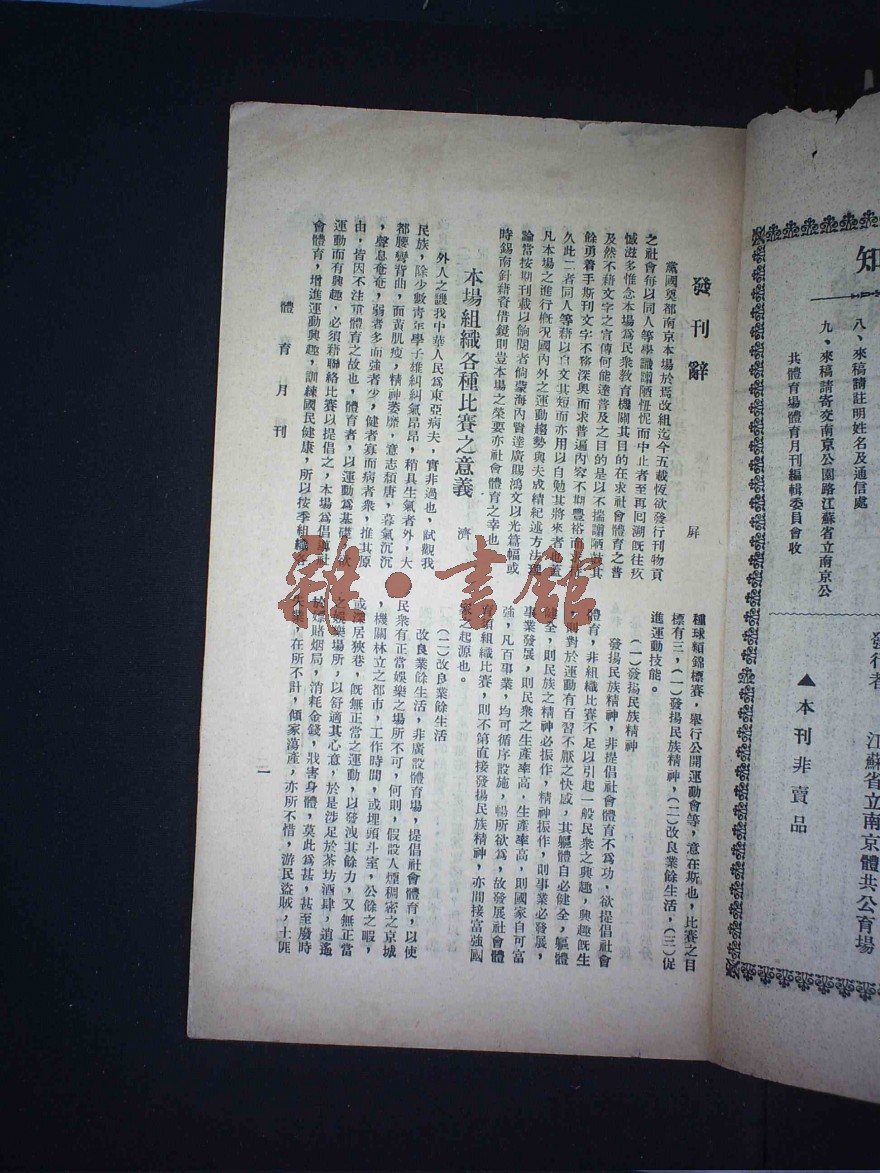 知
八、來稿請註明姓名及通信處
九、來稿請寄交南京公園路江蘇省立南京公
共體育場體育月刊編輯委員會收
發行者 江蘇省立南京體共公育場
▲本刊非賣品
發刊辭 屏
黨國奠都南京本場於焉改組迄今五載恆欲發行刊物貢
之社會每以同人等學識譾陋忸怩而中止者至再囘溯旣往疚
憾滋多惟念本場爲民衆敎育機關其目的在求社會體育之普
及然不藉文字之宣傳何能達普及之目的是以不揣譾陋鼓其
餘勇着手斯刊文字不務深奧而求普遍內容不期豐裕而
久此二者同人等藉以自文其短而亦用以自勉其將來者也蓋
凡本場之進行槪况國內外之運動趨勢與夫成績紀述方法理
論當按期刊載以餉閱者倘蒙海內賢達廣賜鴻文以光篇幅或
時錫南針藉資借鏡則豈本場之榮要亦社會體育之幸也
本場組織各種比賽之意義 濟
外人之譏我中華人民爲東亞病夫，實非過也，試觀我
民族，除少數青年學子雄糾糾氣昂昂，稍具生氣者外，大
都腰彎背曲，面黃肌瘦，精神萎靡，意志頹唐，暮氣沉沉
，聲息奄奄，弱者多而強者少，健者寡而病者衆，推其原
由，皆因不注重體育之故也，體育者，以運動爲基礎，欲
運動而有興趣，必須藉聯絡比賽以提倡之，本場爲倡導社
會體育，增進運動興趣，訓練國民健康，所以按季組織各
種球類錦標賽，舉行公開運動會等，意在斯也，比賽之目
標有三，（一）發揚民族精神，（二）改良業餘生活，（三）促
進運動技能。
（一）發揚民族精神
發揚民族精神，非提倡社會體育不爲功，欲提倡社會
體育，非組織比賽不足以引起一般民衆之興趣，興趣旣生
，則對於運動有百習不厭之快感，其軀體自必健全，軀體
健全，則民族之精神必振作，精神振作，則事業必發展，
事業發展，則民衆之生產率高，生產率高，則國家自可富
強，凡百事業，均可循序設施，暢所欲爲，故發展社會體
育須組織比賽，則不第直接發揚民族精神，亦間接富強國
家之起源也。
（二）改良業餘生活
改良業餘生活，非廣設體育場，提倡社會體育，以使
民衆有正當娛樂之場所不可，何則，假設人煙稠密之京城
，機關林立之都市，工作時間，或埋頭斗室，公餘之暇，
或深居狹巷，旣無正常之運動，以發洩其餘力，又無正當
之娛樂場所，以舒適其心意，於是涉足於茶坊酒肆，逍遙
於嫖賭烟局，消耗金錢，戕害身體，莫此爲甚，甚至廢時
失業，在所不計，傾家蕩產，亦所不惜，游民盜賊，土匪
體育月刊
一
雜·書館